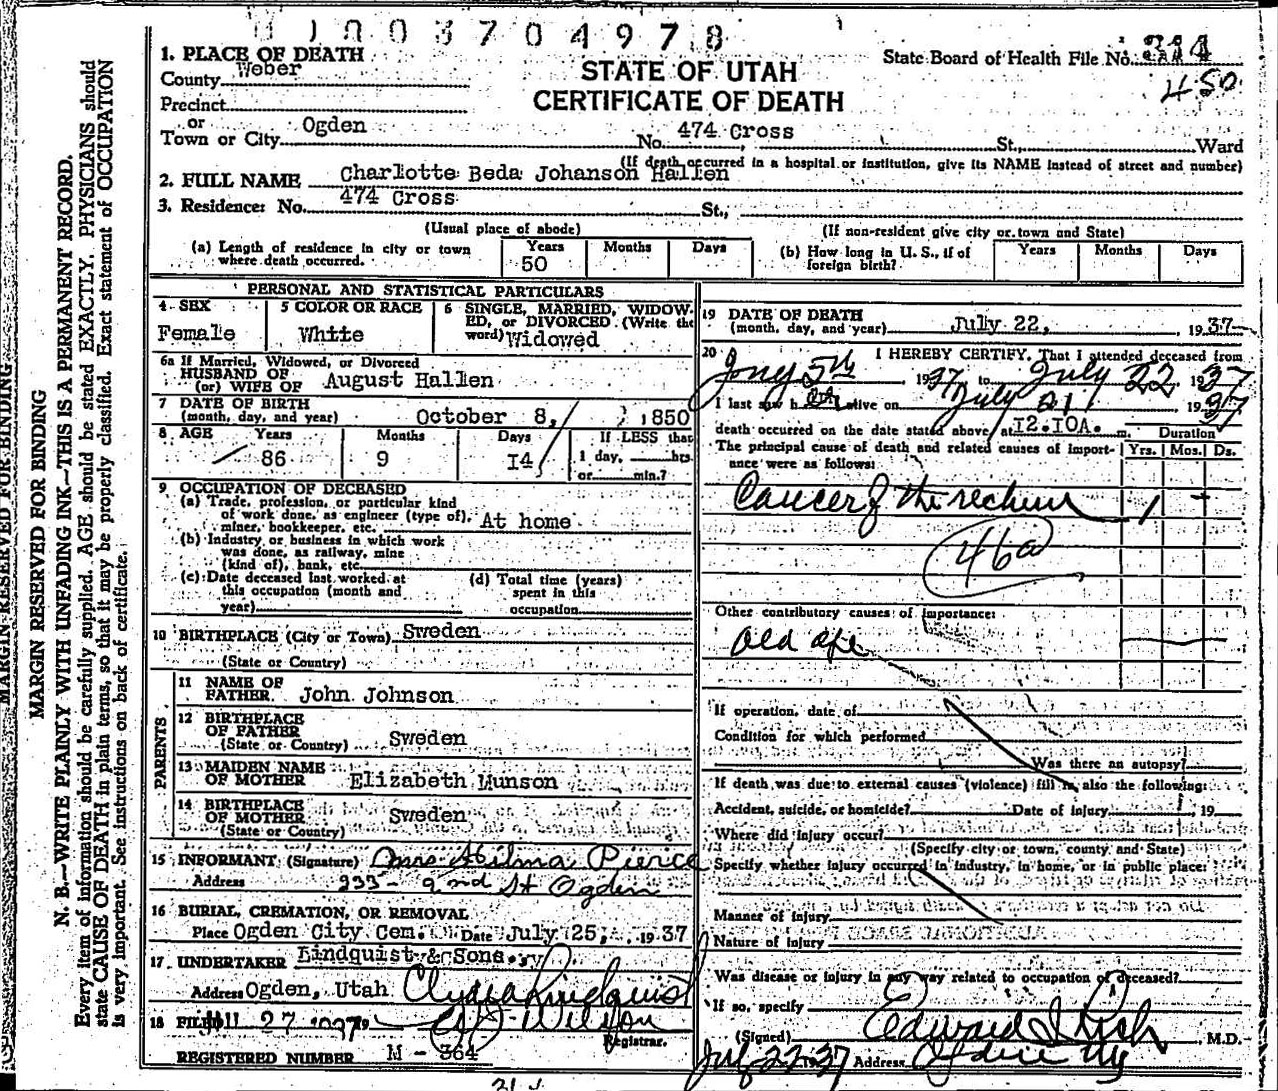 1003704978
1. PLACE OF DEATH
State Board of Health File No. 314
County Weber
STATE OF UTAH
450
Precinct
CERTIFICATE OF DEATH
or
Town or City Ogden No. 474 Cross St., Ward
(If death occurred in a hospital or institution, give its NAME instead of street and number)
2. FULL NAME Charlotte Beda Johanson Hallen
3. Residence: No. 474 Cross St.,
(Usual place of abode) (If non-resident give city or town and State)
(a) Length of residence in city or town where death occurred. Years 50 Months Days
(b) How long in U. S., if of foreign birth? Years Months Days
PERSONAL AND STATISTICAL PARTICULARS
4 SEX Female
5 COLOR OR RACE White
6 SINGLE, MARRIED, WIDOWED, or DIVORCED (Write the word) Widowed
6a If Married, Widowed, or Divorced
HUSBAND OF
(or) WIFE OF August Hallen
7 DATE OF BIRTH
(month, day, and year) October 8, 1850
8 AGE Years 86 Months 9 Days 14
If LESS than
1 day, hrs.
or min.?
9 OCCUPATION OF DECEASED
(a) Trade, profession, or particular kind
of work done, as engineer (type of),
miner, bookkeeper, etc. At home
(b) Industry or business in which work
was done, as railway, mine
(kind of), bank, etc.
(c) Date deceased last worked at
this occupation (month and
year)
(d) Total time (years)
spent in this
occupation
10 BIRTHPLACE (City or Town) Sweden
(State or Country)
PARENTS
11 NAME OF
FATHER John Johnson
12 BIRTHPLACE
OF FATHER
(State or Country) Sweden
13 MAIDEN NAME
OF MOTHER Elizabeth Munson
14 BIRTHPLACE
OF MOTHER
(State or Country) Sweden
15 INFORMANT (Signature) Mrs Hilma Pierce
Address 233 - 2nd St Ogden
16 BURIAL, CREMATION, OR REMOVAL
Place Ogden City Cem. Date July 25, 1937
17. UNDERTAKER Lindquist & Sons.
Address Ogden, Utah Clyde Lindquist
18 FILED Jul 27 1937 Wilson
Registrar.
REGISTERED NUMBER M - 364
19 DATE OF DEATH
(month, day, and year) July 22, 1937
20 I HEREBY CERTIFY, That I attended deceased from
5th 1937 to July 22 1937
I last saw her alive on July 21 1937
death occurred on the date stated above, at 12.10A. m.
Duration
The principal cause of death and related causes of importance were as follows: Yrs. Mos. Ds.
Cancer of the rectum 1
46a
Other contributory causes of importance:
Old age
If operation, date of
Condition for which performed
Was there an autopsy?
If death was due to external causes (violence) fill in also the following:
Accident, suicide, or homicide? Date of injury 19
Where did injury occur?
(Specify city or town, county, and State)
Specify whether injury occurred in industry, in home, or in public place:
Manner of injury
Nature of injury
Was disease or injury in any way related to occupation of deceased?
If so, specify
(Signed) Edward I Rich M.D.
July 22 1937 Address Ogden
MARGIN RESERVED FOR BINDING
MARGIN RESERVED FOR BINDING
N. B.—WRITE PLAINLY WITH UNFADING INK—THIS IS A PERMANENT RECORD.
Every item of information should be carefully supplied. AGE should be stated EXACTLY. PHYSICIANS should
state CAUSE OF DEATH in plain terms, so that it may be properly classified. Exact statement of OCCUPATION
is very important. See instructions on back of certificate.